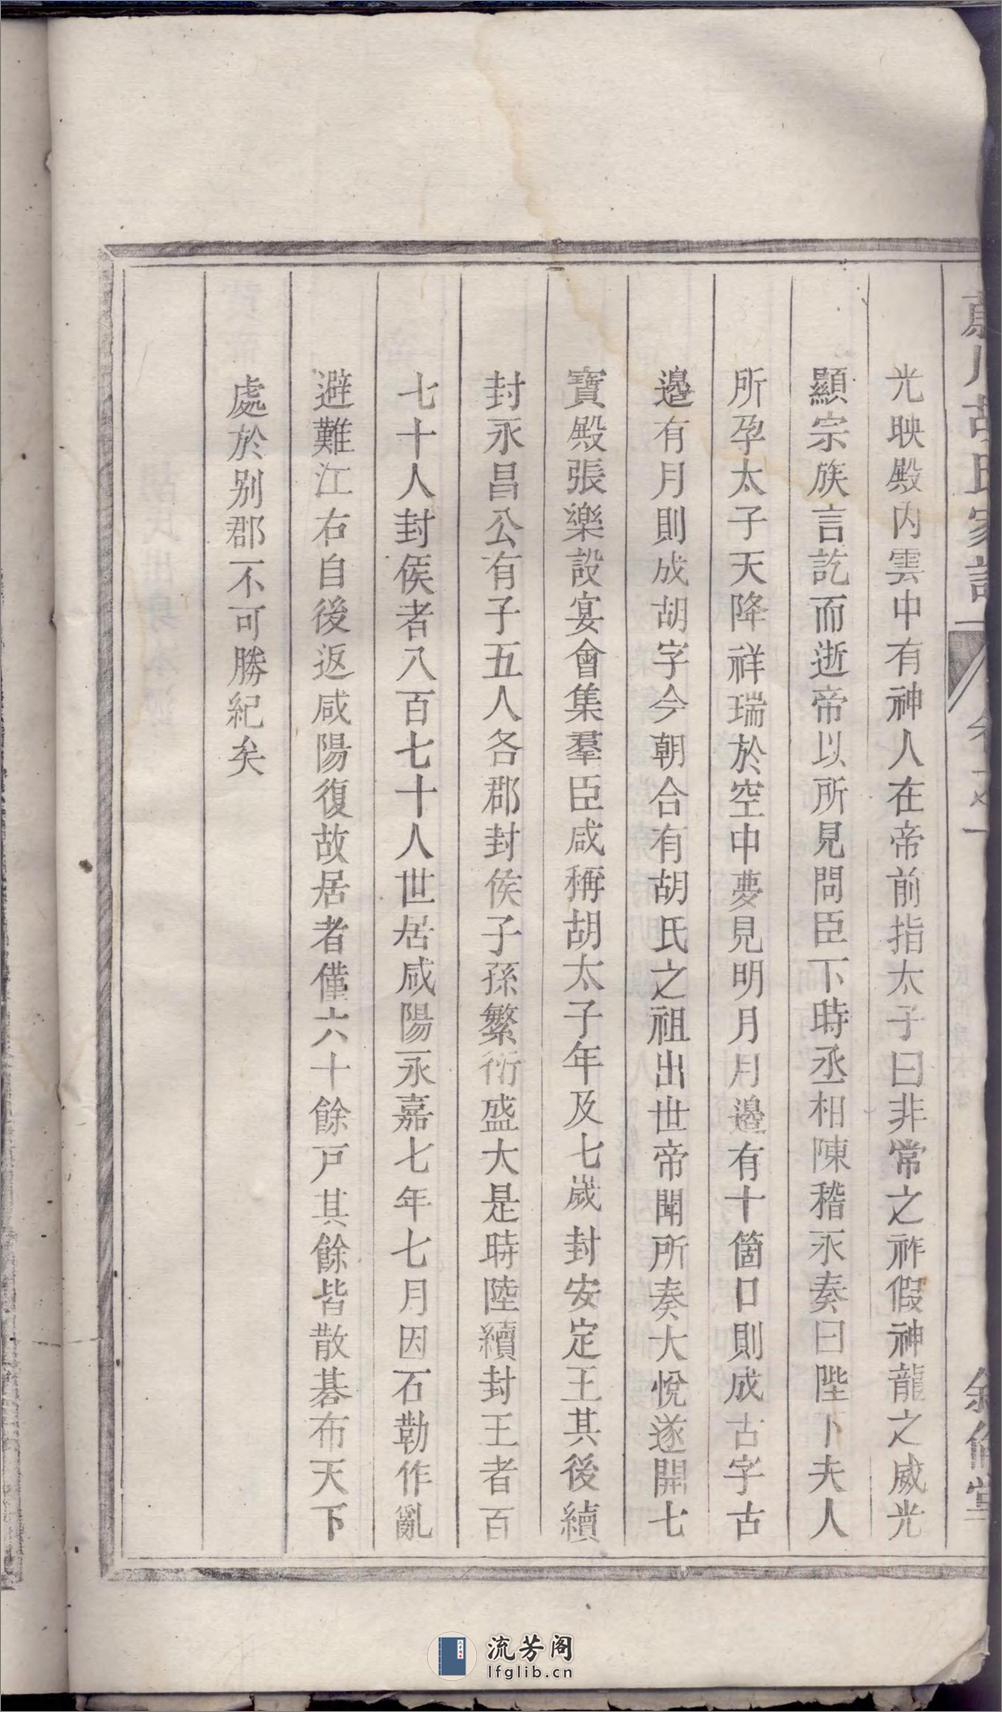 胡氏家譜
卷之一
敘倫堂
光映殿内雲中有神人在帝前指太子曰非常之祚假神龍之威光
顯宗族言訖而逝帝以所見問臣下時丞相陳稽永奏曰陛下夫人
所孕太子天降祥瑞於空中夢見明月月邉有十箇口則成古字古
邉有月則成胡字今朝合有胡氏之祖出世帝聞所奏大悅遂開七
寶殿張樂設宴會集羣臣咸稱胡太子年及七歲封安定王其後續
封永昌公有子五人各郡封侯子孫繁衍盛大是時陸續封王者百
七十人封侯者八百七十人世居咸陽永嘉七年七月因石勒作亂
避難江右自後返咸陽復故居者僅六十餘戸其餘皆散碁布天下
處於别郡不可勝紀矣
流芳阁
lfglib.cn